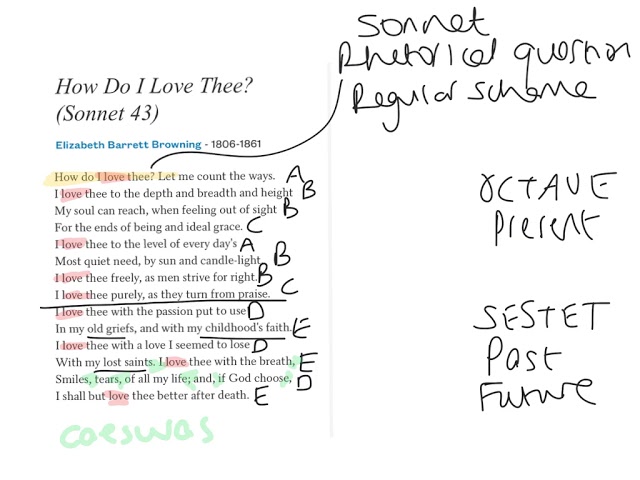 Sonnet
Rhetorical question
Regular scheme
How Do I Love Thee?
(Sonnet 43)
Elizabeth Barrett Browning - 1806-1861
How do I love thee? Let me count the ways. A
I love thee to the depth and breadth and height B
My soul can reach, when feeling out of sight B
For the ends of being and ideal grace. C
I love thee to the level of every day's A
Most quiet need, by sun and candle-light. B
I love thee freely, as men strive for right. B
I love thee purely, as they turn from praise. C
I love thee with the passion put to use D
In my old griefs, and with my childhood's faith. E
I love thee with a love I seemed to lose D
With my lost saints. I love thee with the breath, E
Smiles, tears, of all my life; and, if God choose, D
I shall but love thee better after death. E
OCTAVE
Present
SESTET
Past
Future
caeswas